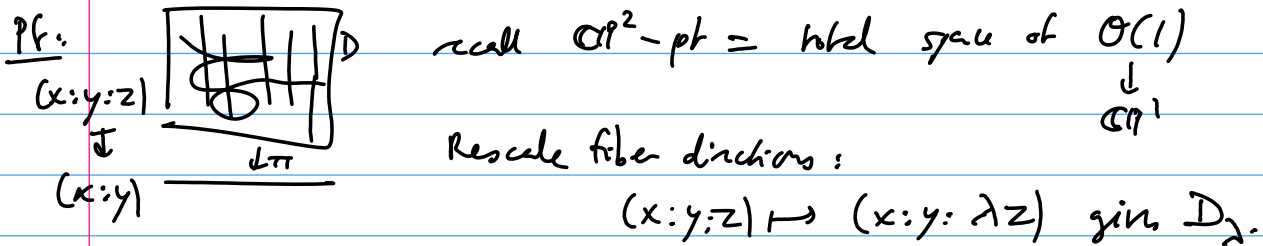 Pf: D recall ℂP²-pt = total space of O(1)
(x:y:z) ↓
↧ ↓π ℂP¹
Rescale fiber directions:
(x:y) (x:y:z) ↦ (x:y:λz) gives D_λ.